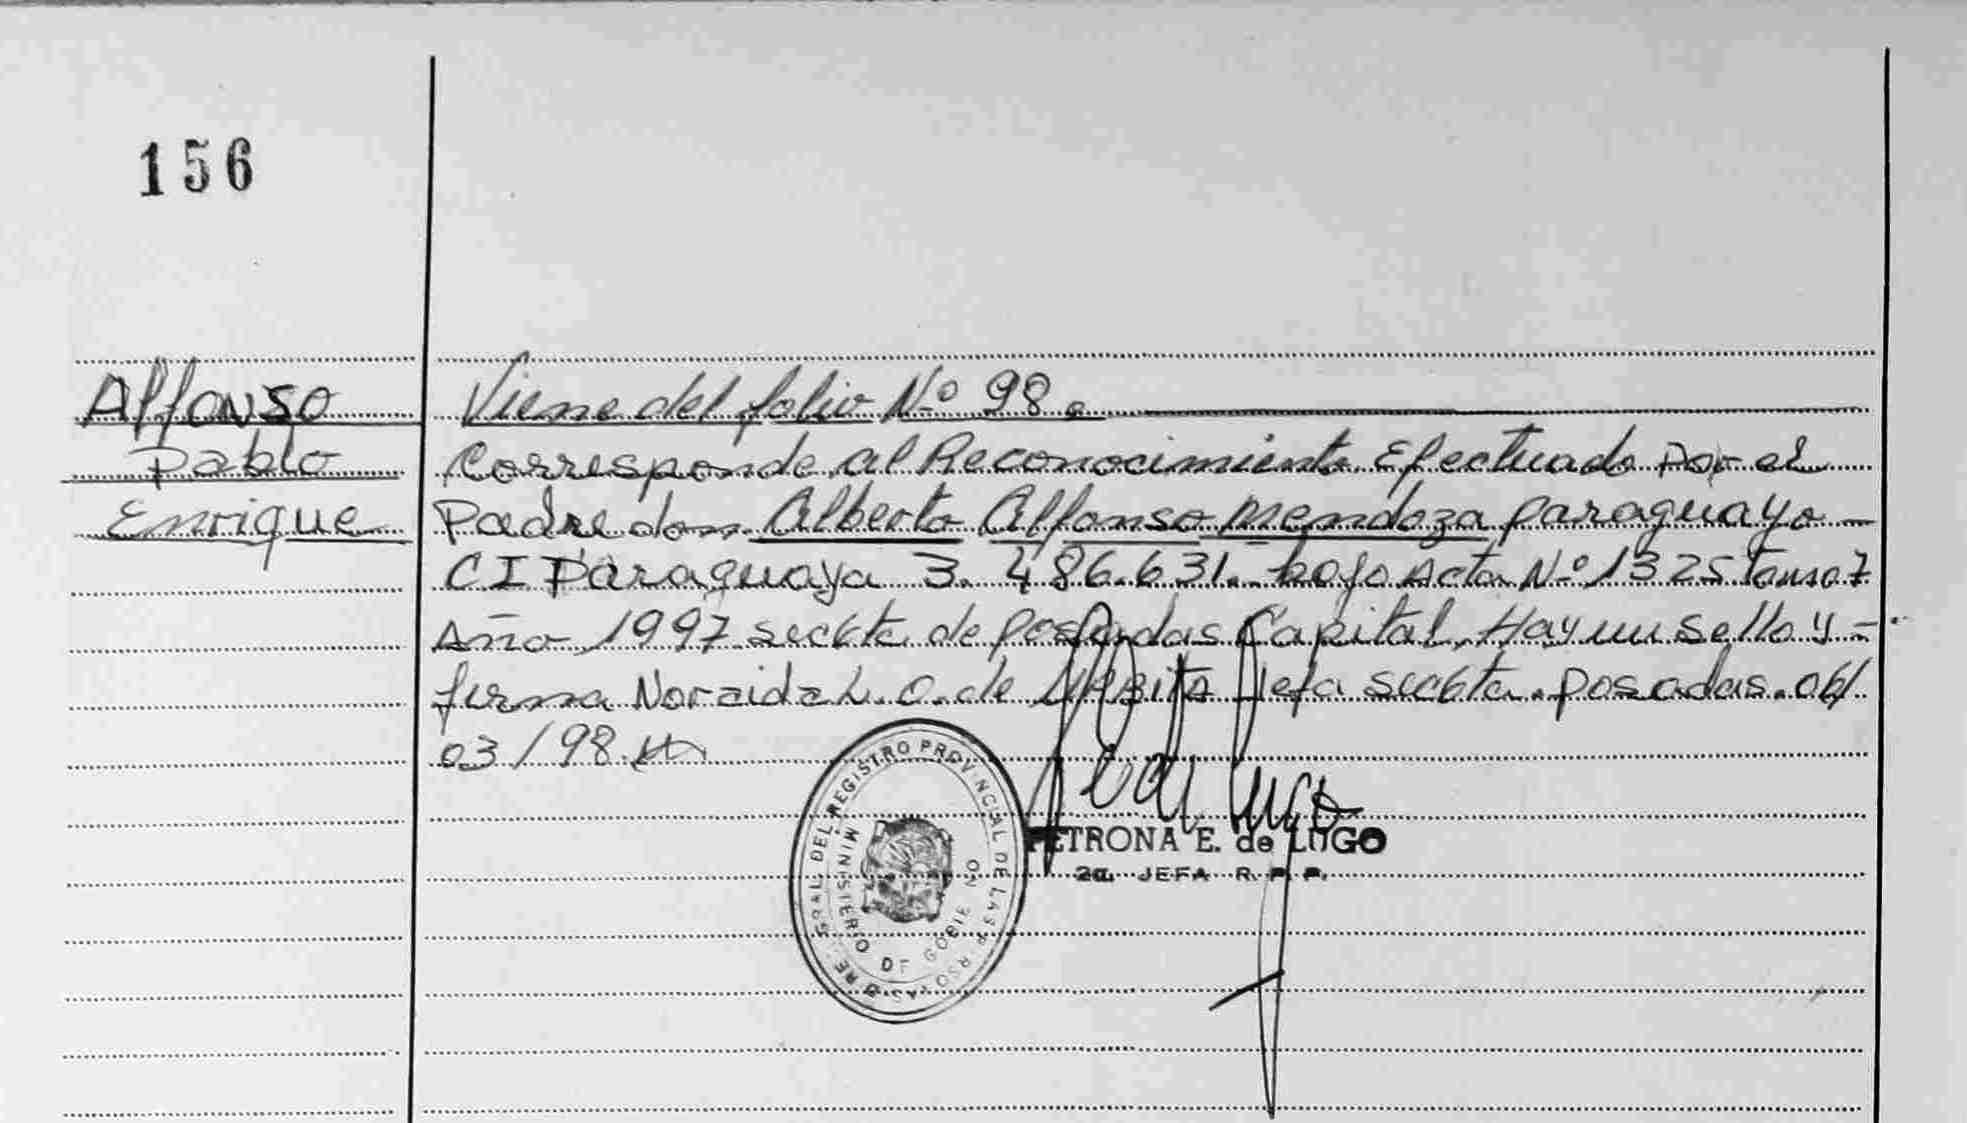 156
Affonso
Pablo
Enrique
Viene del folio N.º 98.
Corresponde al Reconocimiento Efectuado por el
Padre don Alberto Affonso Mendoza paraguayo -
CI Paraguaya 3.486.631. bajo Acta N.º 1325 Tomo 7
Año 1997 seccta de Posadas Capital. Hay un sello y -
firma Noraida L. O. de Jefa seccta. Posadas. 06/
03/98.
DEL REGISTRO PROVINCIAL DE LAS
MINISTERIO DE GOBIERNO
PETRONA E. de LUGO
2a. JEFA R. P. P.